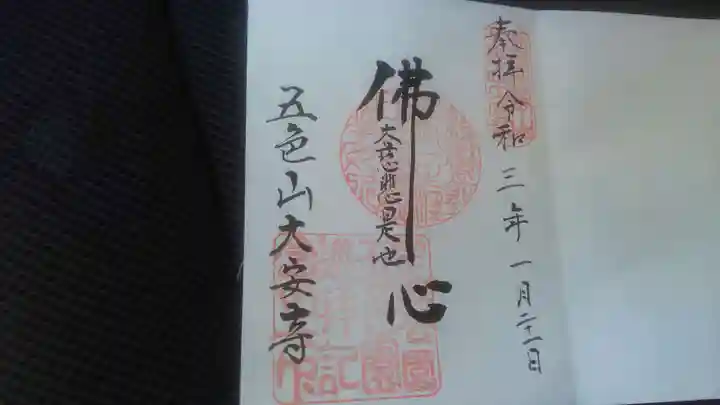 奉拝 令和三年一月二十一日
佛心
大慈悲是也
五色山大安寺